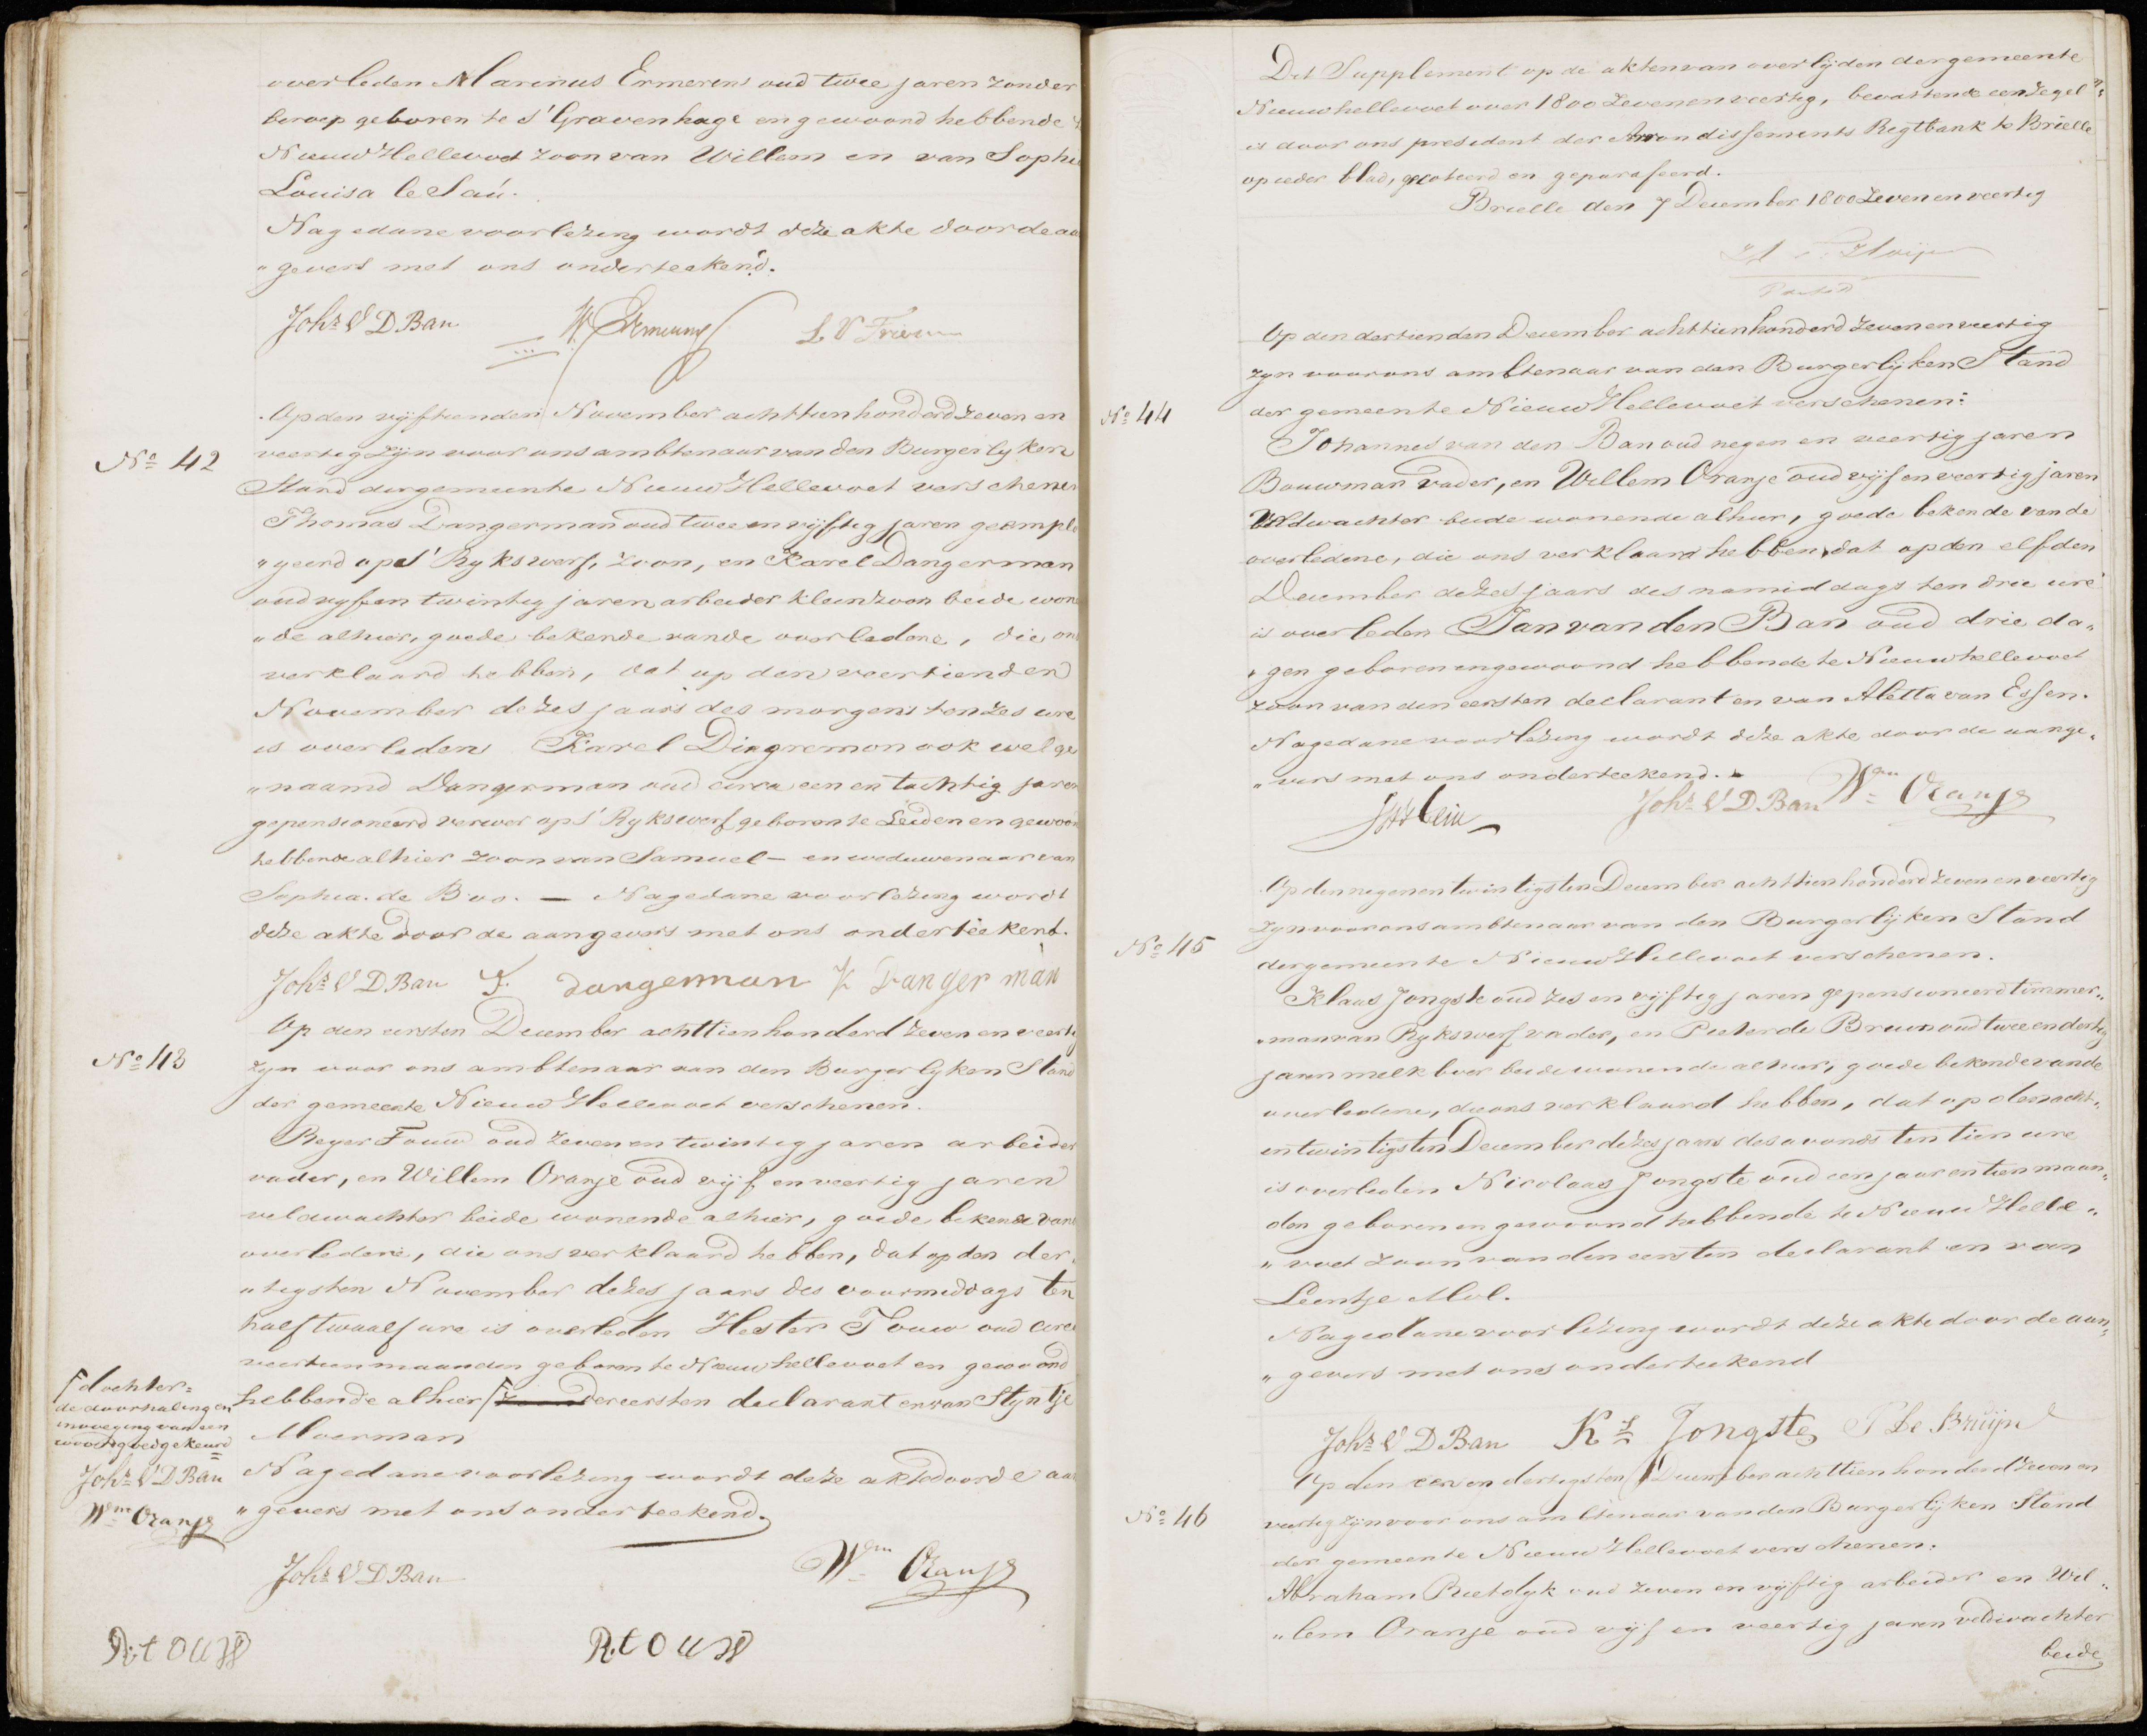 overleden Marinus Ermerins oud twee jaren zonder
beroep geboren te s' Gravenhage en gewoond hebbende
Nieuw Hellevoet zoon van Willem en van Sophia
Louisa le Saú.
Nagedane voorlezing wordt deze akte door de aa
" gevers met ons onderteekend.
Johs V D Ban W Ermerins L V
Op den vijftienden November achttienhonderd zeven en
No 42
veertig zijn voor ons ambtenaar van den Burgerlyken
Stand der gemeente Nieuw Hellevoet verschenen
Thomas Dangerman oud twee en vijftig jaren geemplo
" geerd op s' Rykswerf, zoon, en Karel Dangerman
oud vyf en twintig jaren arbeider kleinzoon beide wone
" de alhier, goede bekende vande overledene, die ons
verklaard hebben, dat op den veertienden
November dezes jaars des morgens ten zes ure
is overleden Karel Dingremon ook wel ge
" naamd Dangerman oud circa een en tachtig jaren
gepensioneerd verwer op s' Rykswerf geboren te Leiden en gewoon
hebbende alhier zoon van Samuel — en weduwenaar van
Sophia de Boo. — Nagedane voorlezing wordt
deze akte door de aangevers met ons onderteekent.
Johs V D Ban T. dangerman K Danger man
Op den eersten December achttienhonderd zeven en veerti
No 43
zyn voor ons ambtenaar van den Burgerlyken Stand
der gemeente Nieuw Hellevoet verschenen.
Reyer Touw oud zeven en twintig jaren arbeider
vader, en Willem Oranje oud vijf en veertig jaren
veldwachter beide wonende alhier, goede bekende van
overledene, die ons verklaard hebben, dat op den der
" tigsten November dezes jaars des voormiddags ten
half twaalf ure is overleden Hester Touw oud circa
veertien maanden geboren te Nieuwhellevoet en gewoond
hebbende alhier der eersten declarant en van Styntje
Moerman
Nagedane voorlezing wordt deze akte door de aan
" gevers met ons onderteekend.
dochter=
de doorhaling en
invoeging van een
woord goedgekeurd
Johs V D Ban
Wm Oranje
Johs V D Ban Wm Oranje
R. t O U W R. t O U W
Dit Supplement op de akten van overlijden der gemeente
Nieuwhellevoet over 1800 zevenenveertig, bevattende een zegel
is door ons president der Arrondissements Regtbank te Brielle
op ieder blad, gecoteerd en geparafeerd.
Brielle den 7 December 1800 zevenenveertig
Op den dertienden December achttienhonderd zevenenveertig
zyn voor ons ambtenaar van den Burgerlyken Stand
No 44
der gemeente Nieuw Hellevoet verschenen:
Johannes van den Ban oud negen en veertig jaren
Bouwman vader, en Willem Oranje oud vijf en veertig jaren
Veldwachter beide wonende alhier, goede bekende van de
overledene, die ons verklaard hebben, dat op den elfden
December dezes jaars des namiddags ten drie ure
is overleden Jan van den Ban oud drie da,
" gen geboren en gewoond hebbende te Nieuwhellevoet
zoon van den eersten declarant en van Aletta van Essen.
Nagedane voorlezing wordt deze akte door de aange,
" vers met ons onderteekend.
Johs V D Ban Wm Oranje
Op den negenentwintigsten December achttienhonderd zeven en veertig
zyn voor ons ambtenaar van den Burgerlijken Stand
No 45
der gemeente Nieuw Hellevoet verschenen.
Klaas Jongste oud zes en vijftig jaren gepensioneerd timmer,,
" man van Rykswerf vader, en Pieter de Bruin oud twee en dertig
jaren melkboer beide wonende alhier, goede bekende van de
overledene, die ons verklaard hebben, dat op den acht,,
en twintigsten December dezes jaars des avonds ten tien ure
is overleden Nicolaas Jongste oud een jaar en tien maan,,
den geboren en gewoond hebbende te Nieuw Helle,,
" voet zoon van den eersten declarant en van
Leentje Mol.
Nagedane voorlezing wordt deze akte door de aan,,
" gevers met ons onderteekend
Johs V D Ban Ks Jongste P De Bruijn
Op den een en dertigsten December achttienhonderd zeven en
No 46
veertig zijn voor ons ambtenaar van den Burgerlijken Stand
der gemeente Nieuw Hellevoet verschenen.
Abraham Rietdyk oud zeven en vijftig arbeider en Wil,,
" lem Oranje oud vijf en veertig jaren veldwachter
beide